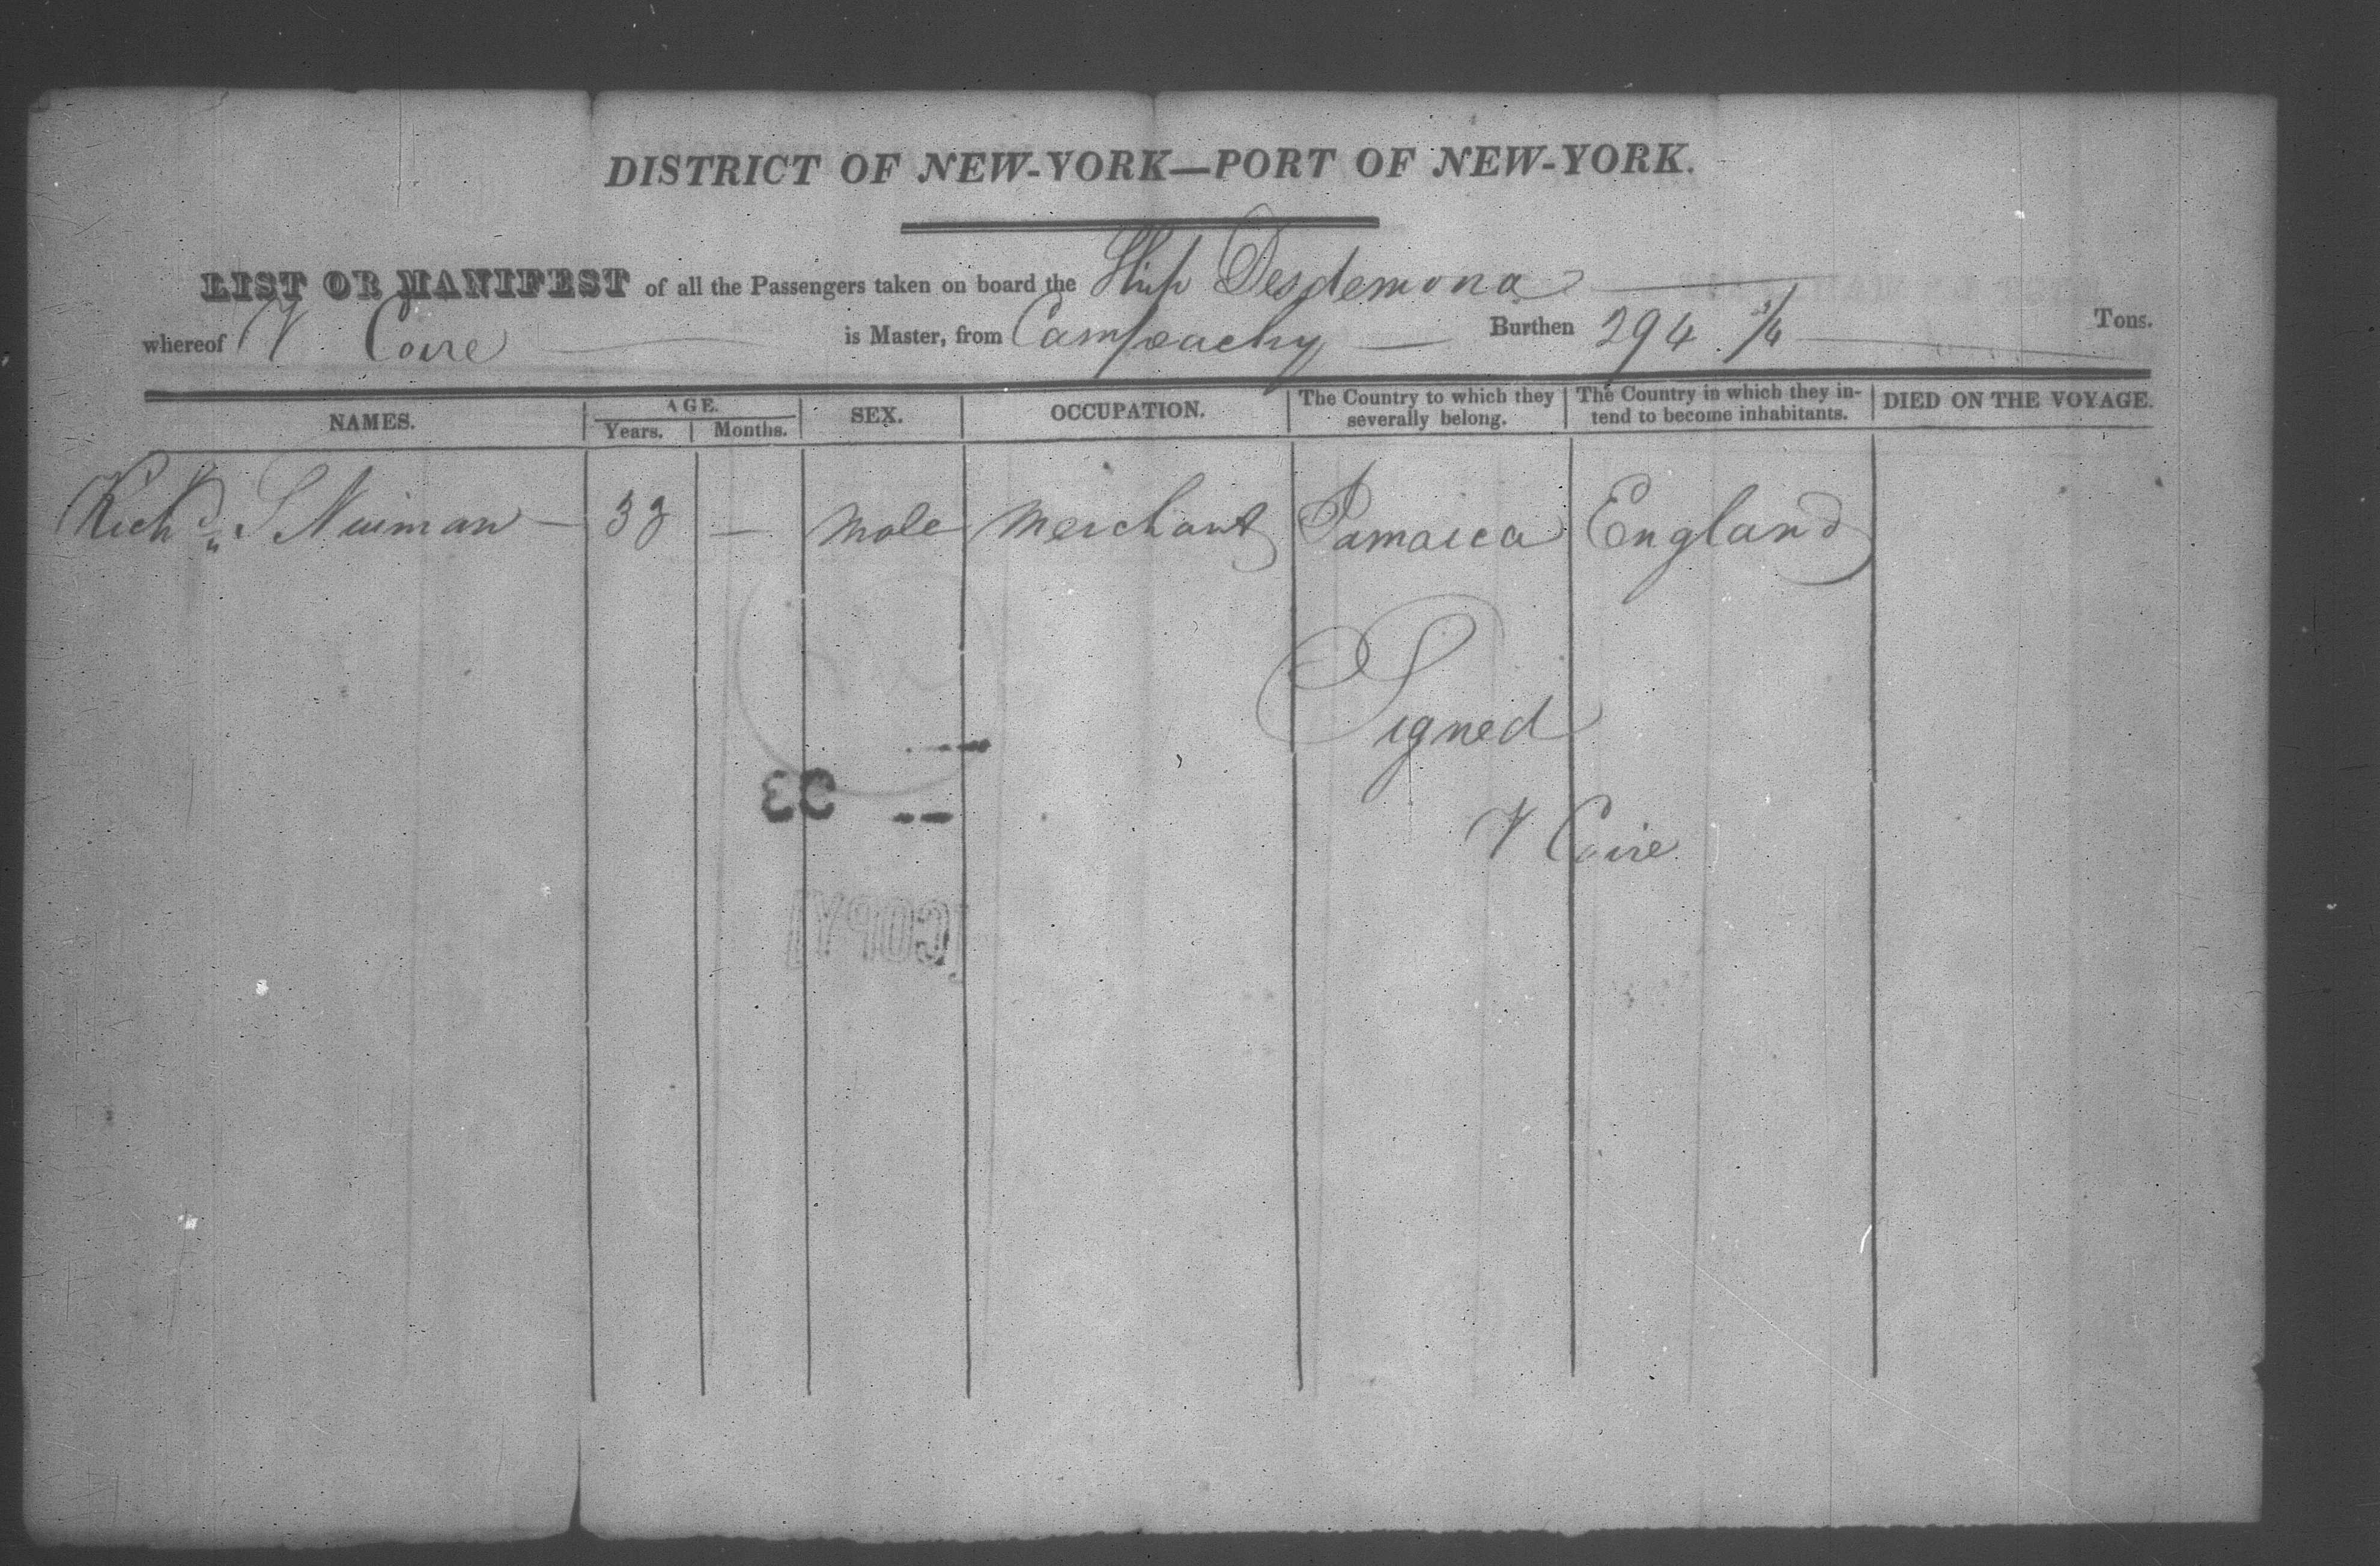 DISTRICT OF NEW-YORK—PORT OF NEW-YORK.
LIST OR MANIFEST of all the Passengers taken on board the Ship Desdemona
whereof V Coire is Master, from Campeachy Burthen 294 3/4 Tons.
NAMES. AGE. SEX. OCCUPATION. The Country to which they severally belong. The Country in which they intend to become inhabitants. DIED ON THE VOYAGE.
Years. Months.
Richd. S 33 — male merchant Jamaica England
Signed
V Coire
[COPY]